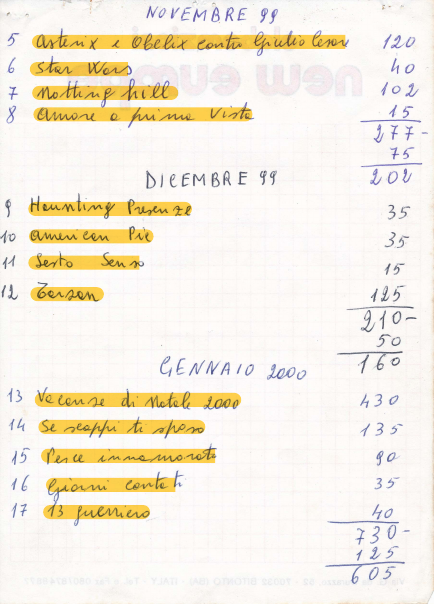 NOVEMBRE 99
5 Asterix e Obelix contro Giulio Cesare 120
6 Star Wars 40
7 Notting hill 102
8 Amore a prima vista 15
277-
75
202
DICEMBRE 99
9 Haunting Presenze 35
10 American Pie 35
11 Sesto Senso 15
12 Tarzan 125
210-
50
160
GENNAIO 2000
13 Vacanze di Natale 2000 430
14 Se scappi ti sposo 135
15 Pesce innamorato 90
16 Giorni contati 35
17 13 guerriero 40
730-
125
605